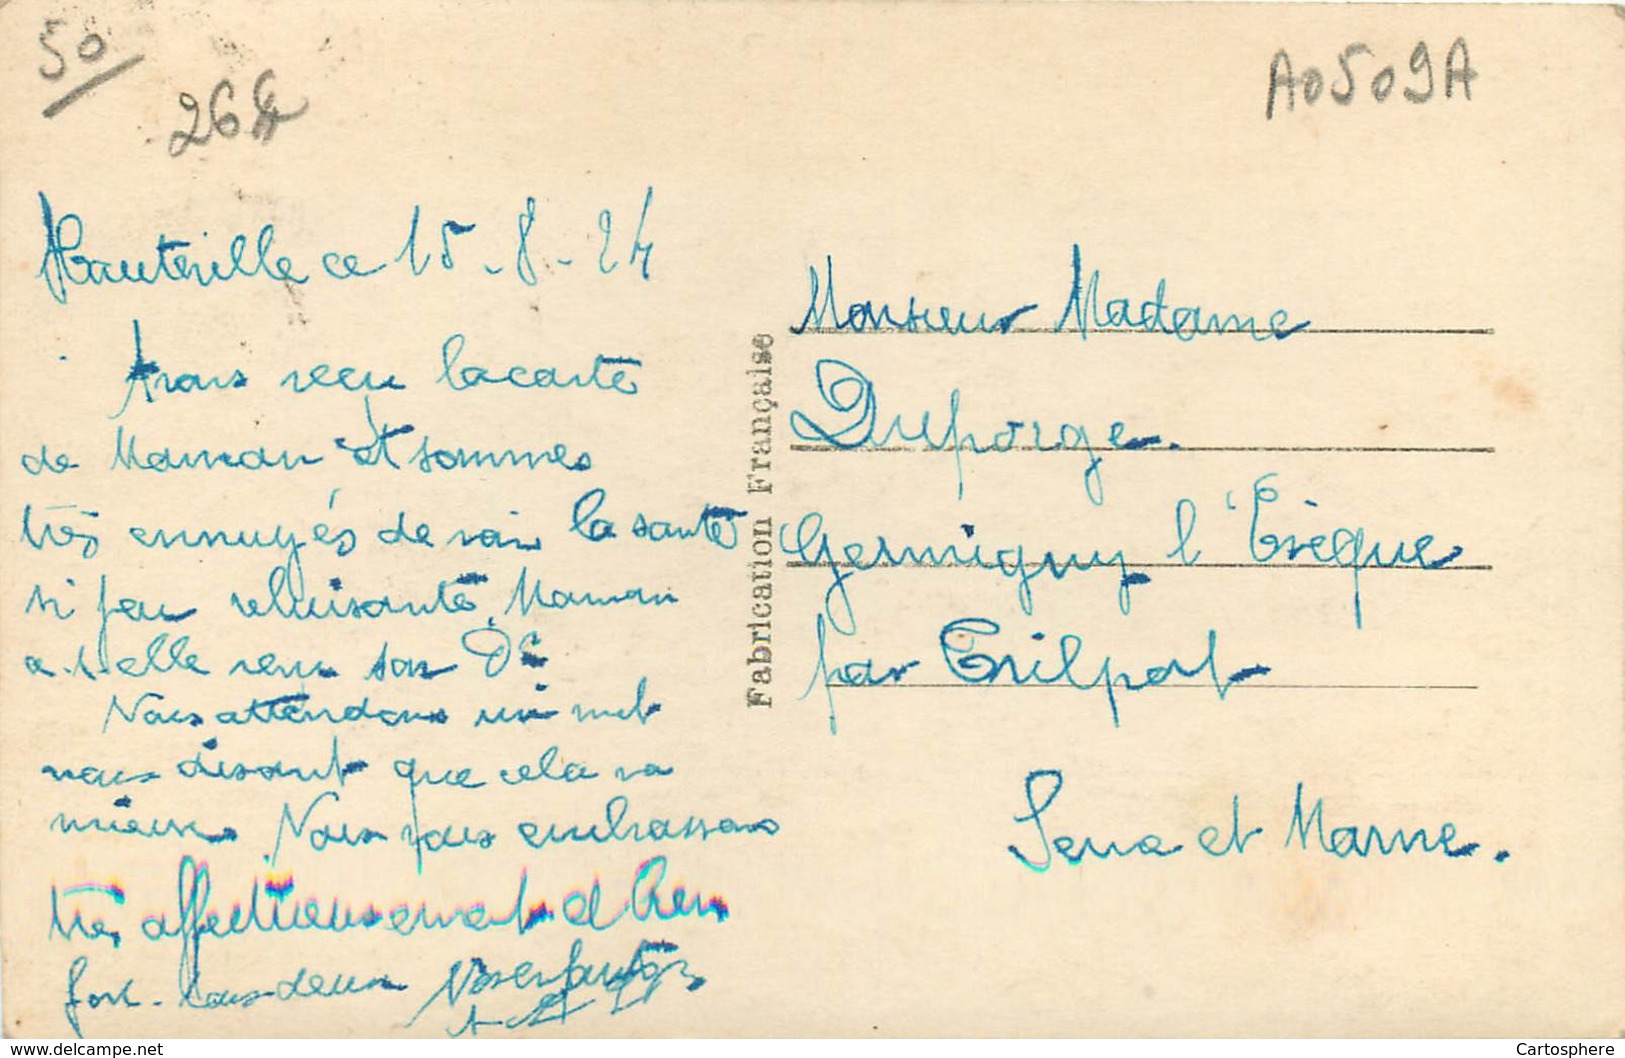 50
A0509A
Hauteville ce 15-8-24
Avons reçu la carte
de Maman et sommes
très ennuyés de voir la santé
si peu reluisante, Maman
a-t-elle revu son Dr
Nous attendons un mot
nous disant que cela va
mieux. Nous vous embrassons
très affectueusement et bien
fort tous deux Vos enfants
Fabrication Française
Monsieur Madame
Duporge.
Germigny l'Evêque
par Trilport
Seine et Marne.
www.delcampe.net
Cartosphere